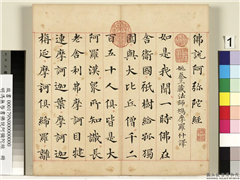 佛說阿弥陀經
姚秦三藏法師鳩摩羅什譯
如是我聞一時佛在
舍衛國祇樹給孤獨
園與大比丘僧千二
百五十人俱皆是大
阿羅漢眾所知識長
老舍利弗摩訶目
連摩訶迦葉摩訶迦
延摩訶俱絺羅離